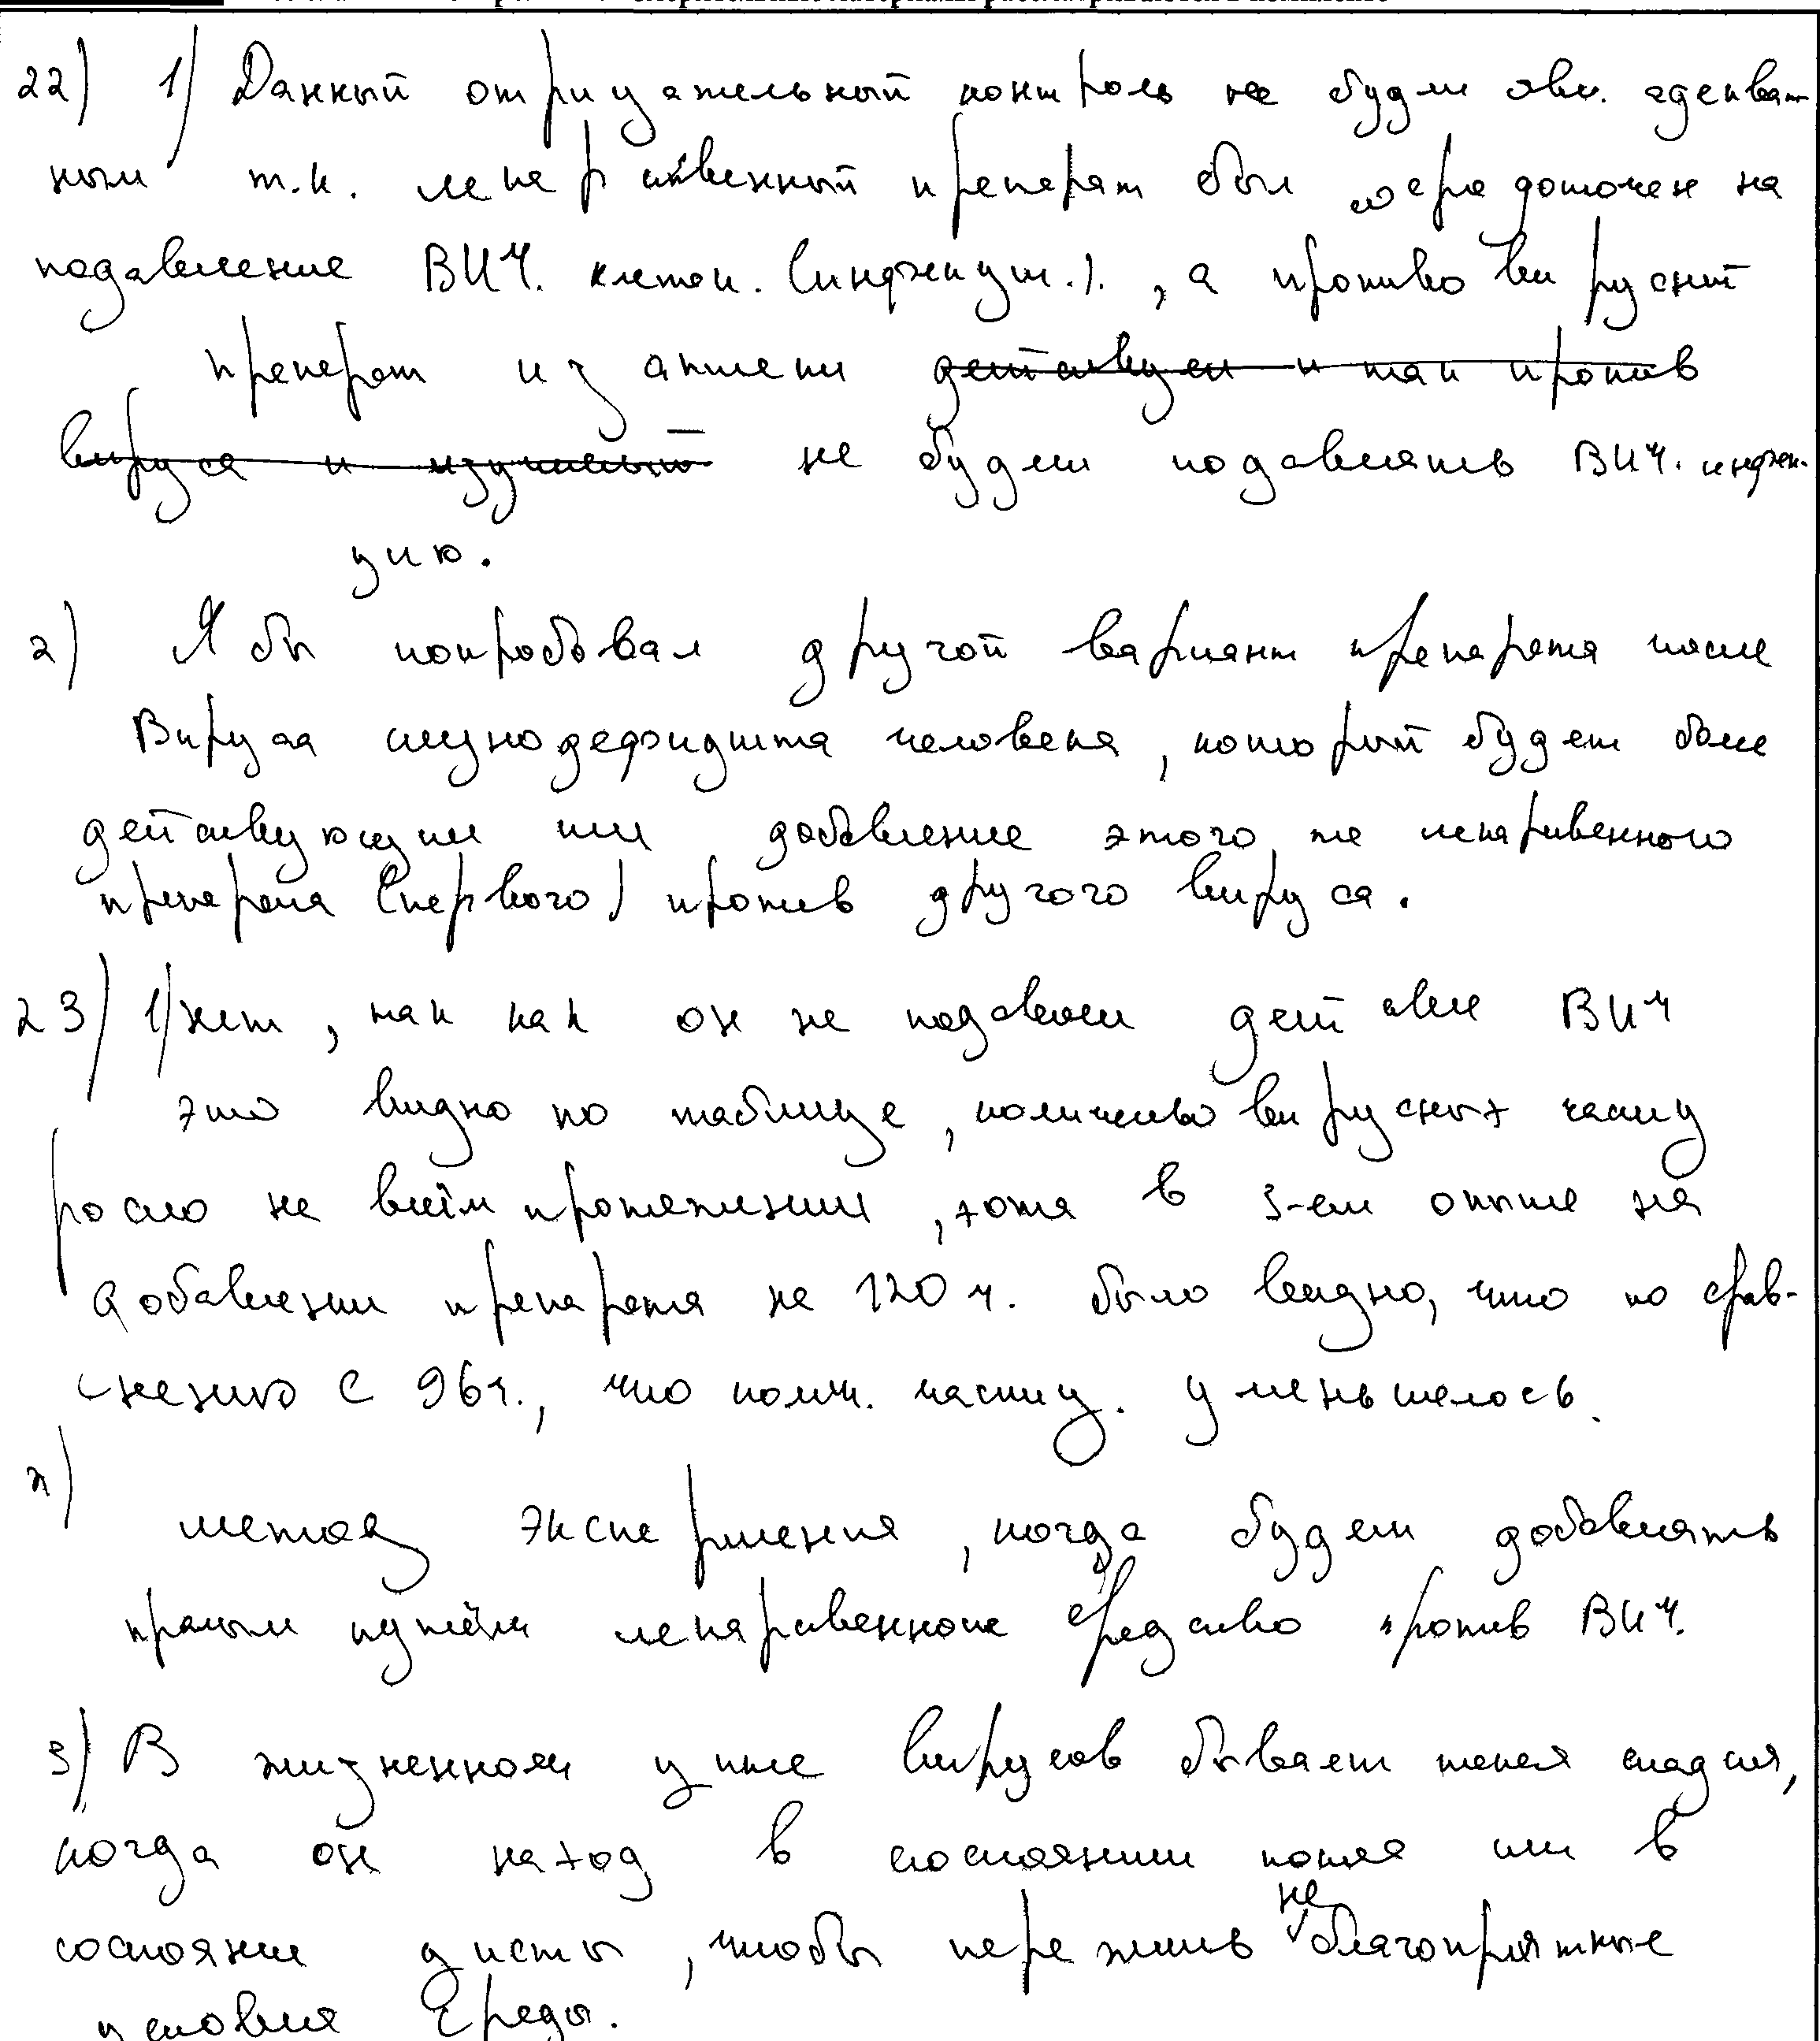 22) 1) Данный отрицательный контроль не будет явл. адекват-
ным т.к. лекарственный препарат был сосредоточен на
подавление ВИЧ. клеток. (инфекцит.). , а противовирусный
препарат из аптеки действует и так против
вируса и изучаемый не будет подавлять ВИЧ. инфек-
цию.
2) Я бы попробовал другой вариант препарата после
Вируса имунодефицита человека, который будет более
действующим или добавление этого же лекарвенного
препарата (первого) против другого вируса.
23) 1) нет, так как он не подавлял действие ВИЧ
это видно по таблице, количество вирусных частиц
росло на всём протяжении, хотя в 3-ем опыте на
добавлении препарата на 120 ч. было видно, что по срав-
нению с 96ч., что колич. частиц. уменьшелось.
2)
метод эксперимента, когда будем добавлять
прямым путём лекарвенное средство против ВИЧ.
3) В жизненном цикле вирусов бывает такая стадия,
когда он наход в состоянии покоя или в
состояние цисты, чтобы пережить неблагоприятные
условия среды.